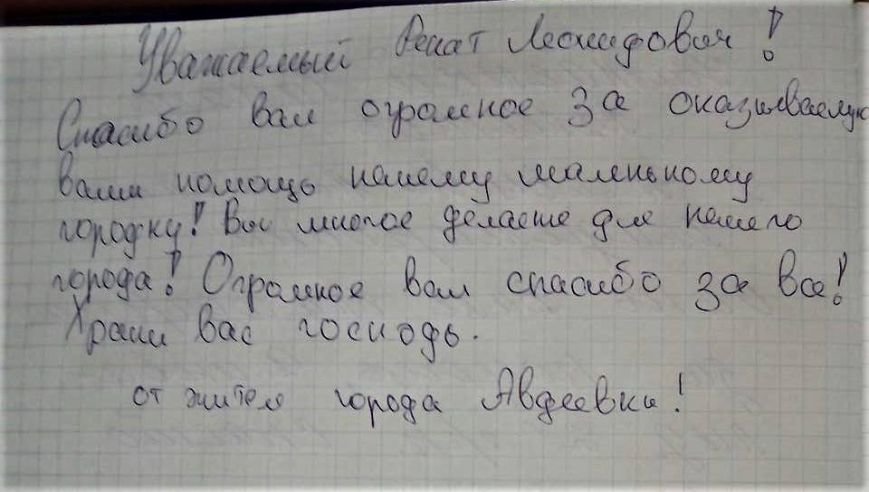 Уважаемый Ренат Леонидович!
Спасибо вам огромное за оказываемую
вами помощь нашему маленькому
городку! Вы многое делаете для нашего
города! Огромное вам спасибо за все!
Храни вас господь.
от жителя города Авдеевки!